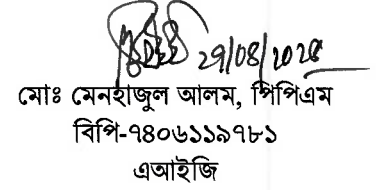 29/08/2025
মোঃ মেনহাজুল আলম, পিপিএম
বিপি-৭৪০৬১১৯৭৮১
এআইজি